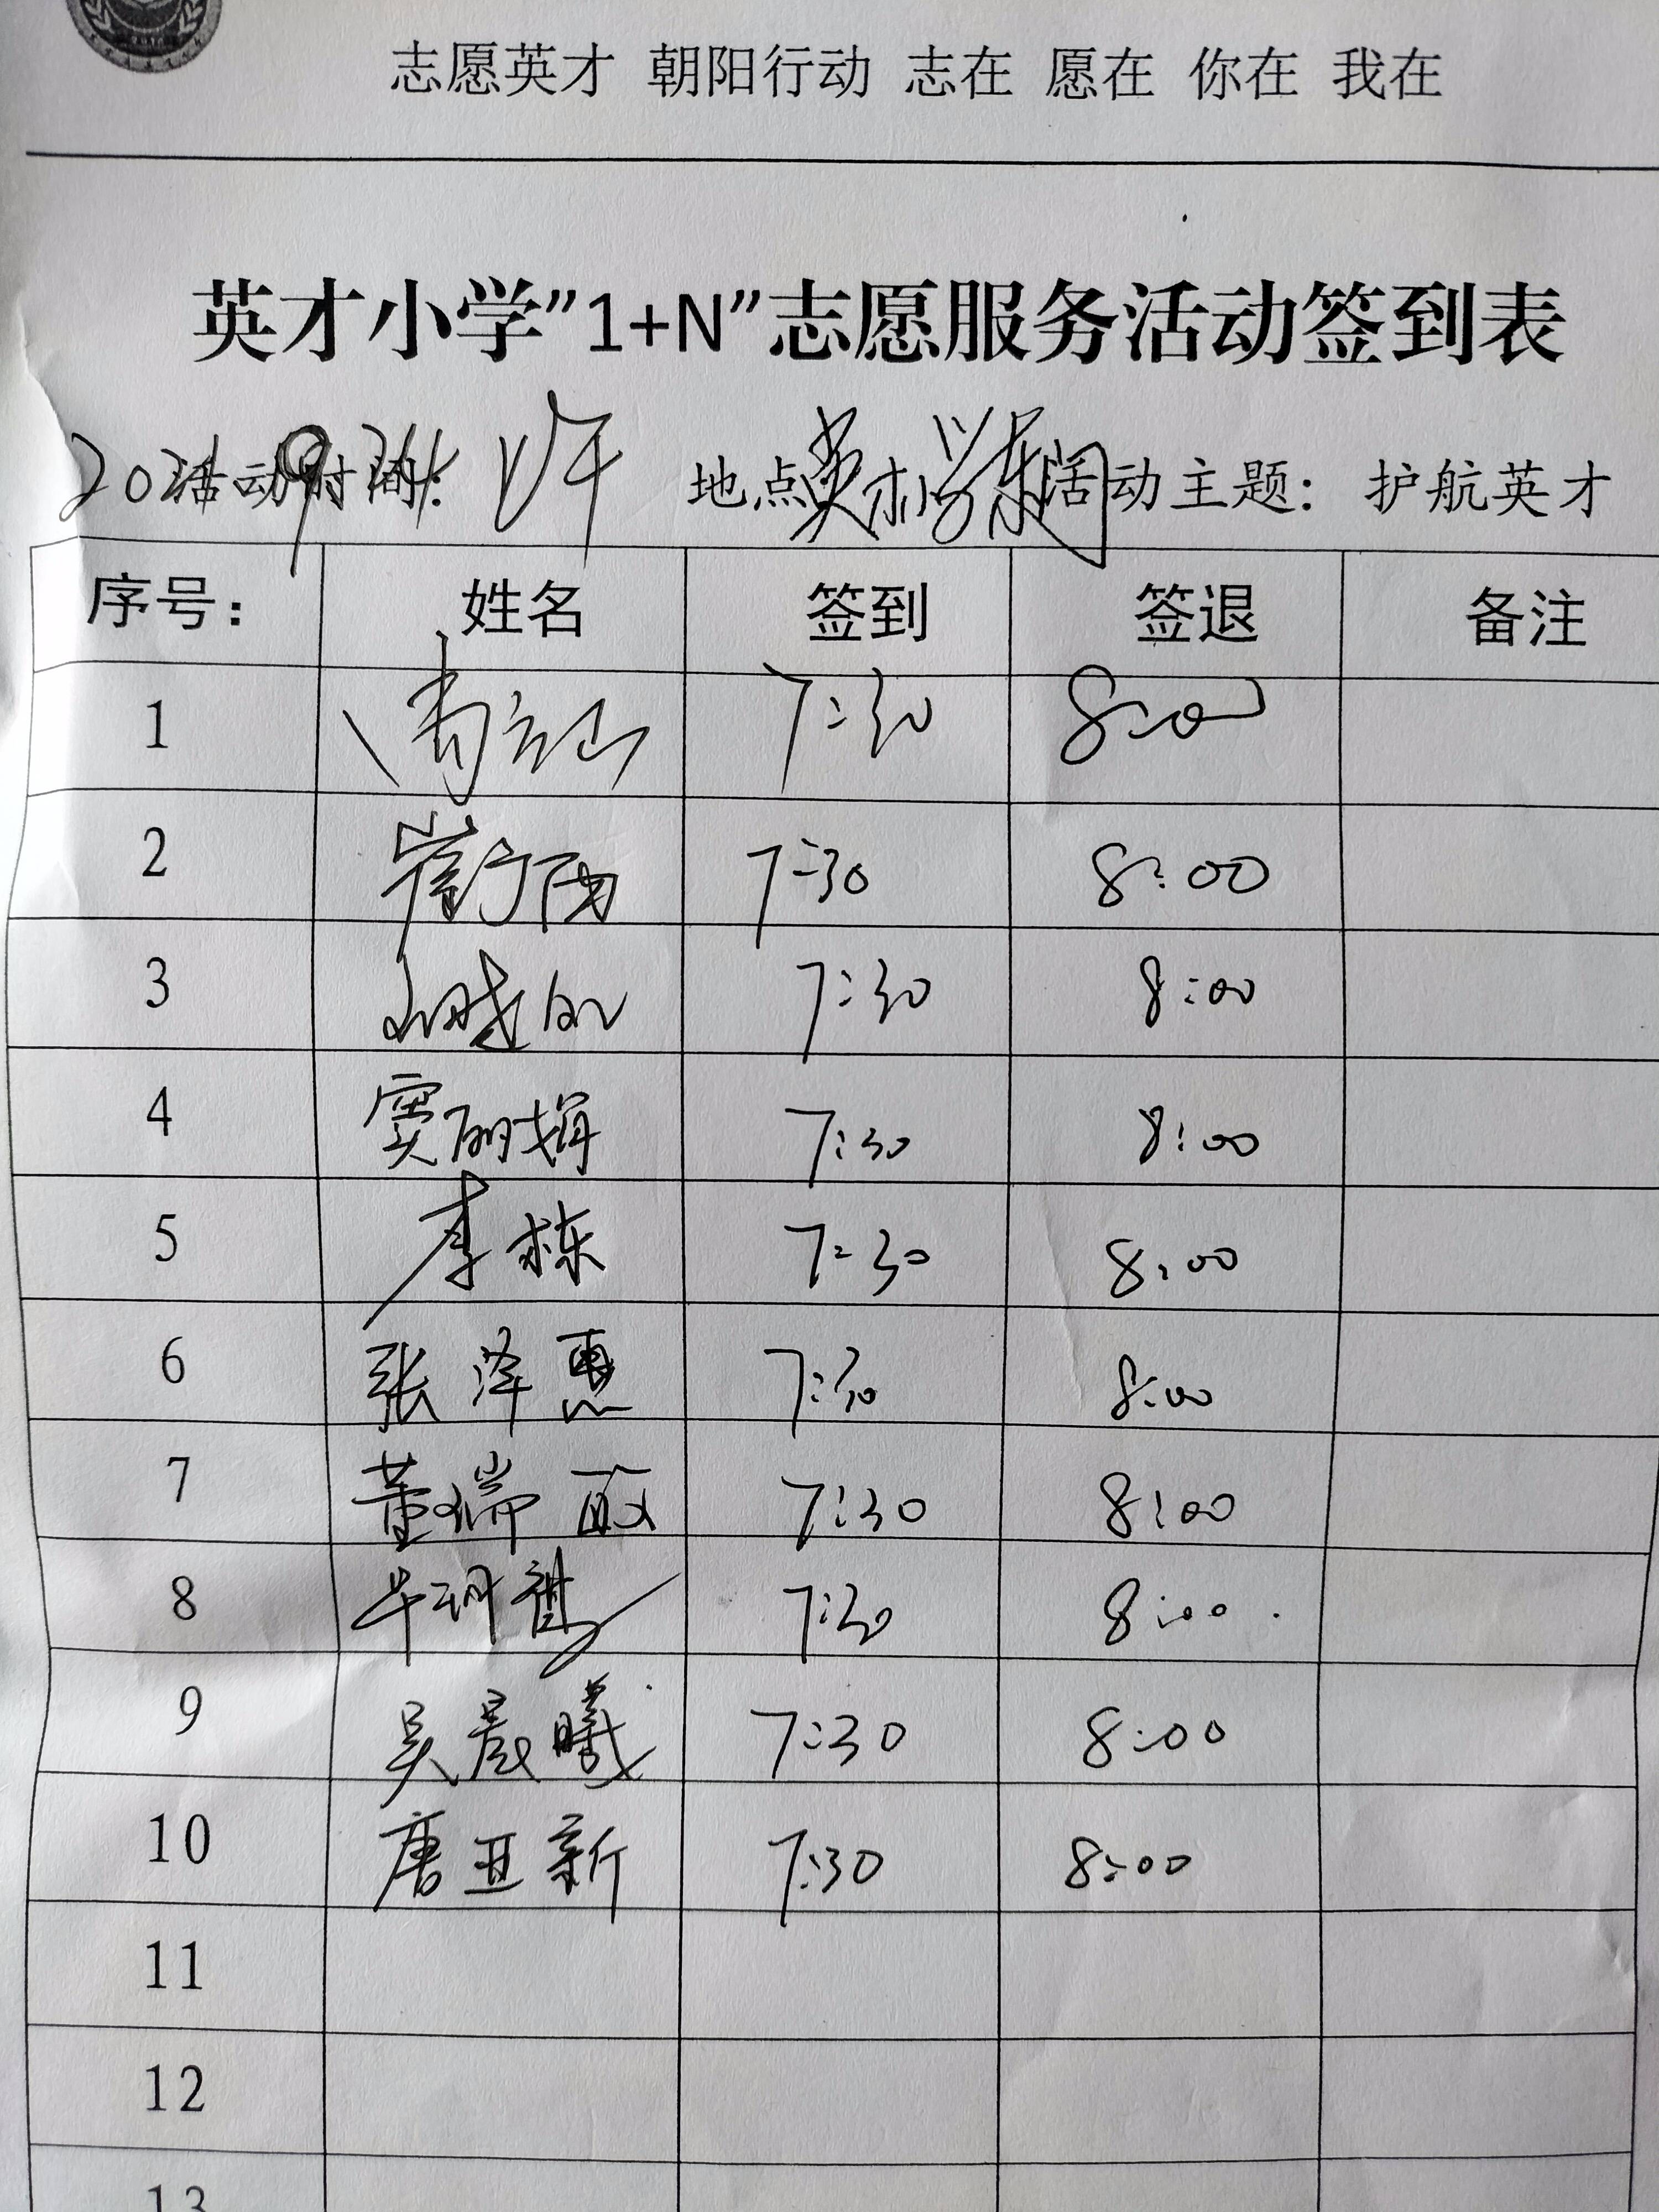 志愿英才 朝阳行动 志在 愿在 你在 我在
英才小学”1+N”志愿服务活动签到表
活动时间： 地点 英才小学东门 活动主题： 护航英才
序号： 姓名 签到 签退 备注
1 7:30 8:00
2 7:30 8:00
3 7:30 8:00
4 窦丽娟 7:30 8:00
5 李栋 7:30 8:00
6 张泽惠 7:30 8:00
7 董瑞丽 7:30 8:00
8 7:30 8:00
9 吴晨曦 7:30 8:00
10 唐亚新 7:30 8:00
11
12
13